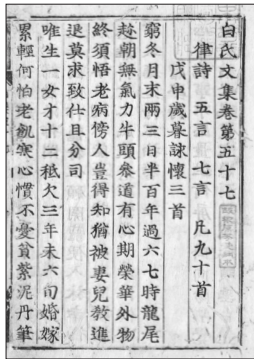 白氏文集卷第五十七
律詩 五言 七言 凡九十首
戊申歲暮詠懷三首
窮冬月末兩三日半百年過六七時龍尾
趂朝無氣力牛頭參道有心期榮華外物
終須悟老病傍人豈得知猶被妻兒敎進
退莫求致仕且分司
唯生一女才十二秪欠三年未六旬婚嫁
累輕何怕老飢寒心慣不憂貧紫泥丹筆